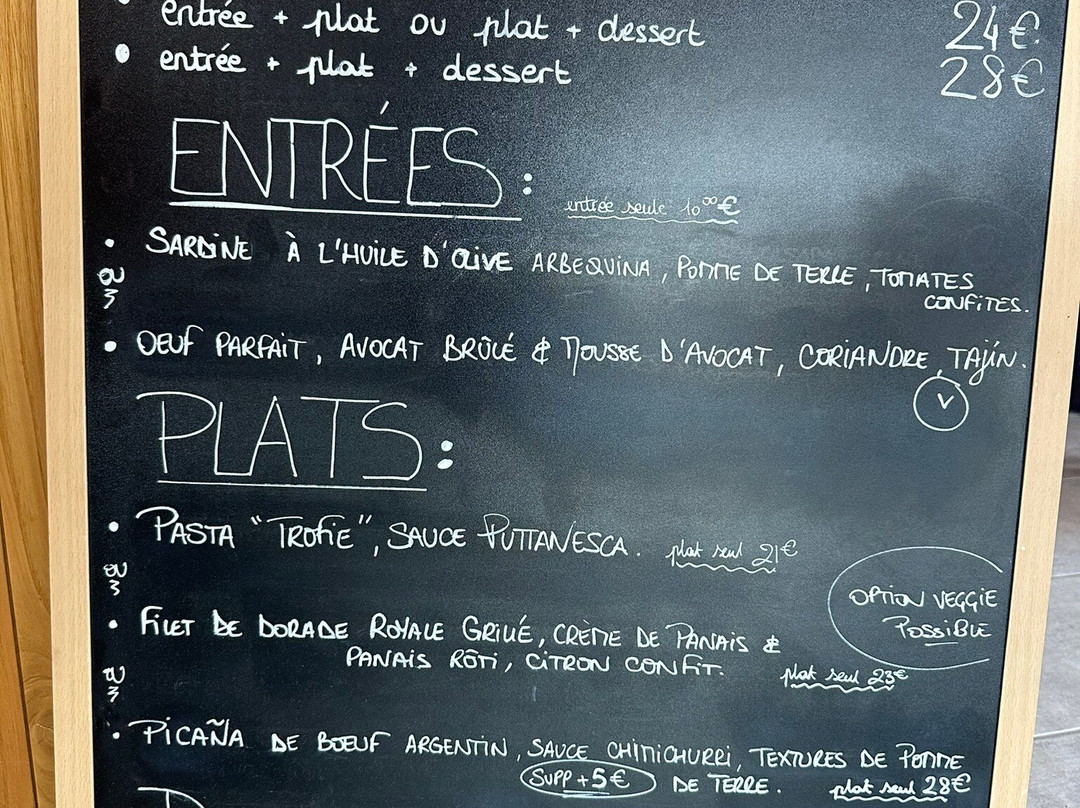 • entrée + plat ou plat + dessert 24€
• entrée + plat + dessert 28€
ENTRÉES :
entrée seule 10,00€
• SARDINE À L'HUILE D'OLIVE ARBEQUINA, POMME DE TERRE, TOMATES
CONFITES.
• OEUF PARFAIT, AVOCAT BRÛLÉ & MOUSSE D'AVOCAT, CORIANDRE, TAJÍN.
V
PLATS :
• PASTA "TROFIE", SAUCE PUTTANESCA. plat seul 21€
OPTION VEGGIE
POSSIBLE
• FILET DE DORADE ROYALE GRILLÉ, CRÈME DE PANAIS &
PANAIS RÔTI, CITRON CONFIT. plat seul 23€
• PICAÑA DE BOEUF ARGENTIN, SAUCE CHIMICHURRI, TEXTURES DE POMME
SUPP +5€ DE TERRE. plat seul 28€